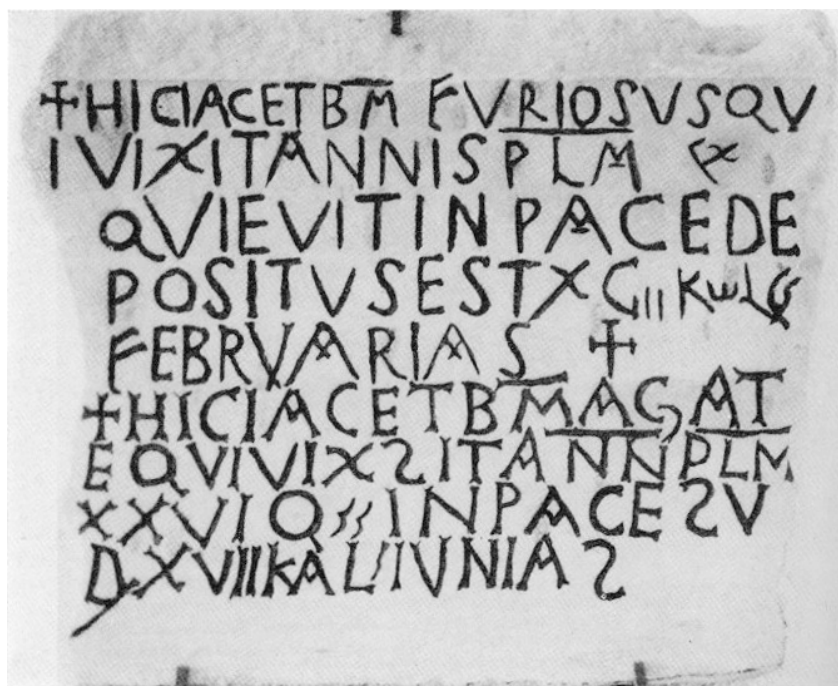 ✝HICIACETBM FVRIOSVSQV
IVIXITANNISPLM
QVIEVITINPACEDE
POSITVSEST
FEBRVARIAS ✝
✝HICIACETBMAGAT
EQVIVIXSITANNPLM
XXVIQ INPACESV
D XVIIKALIVNIAS